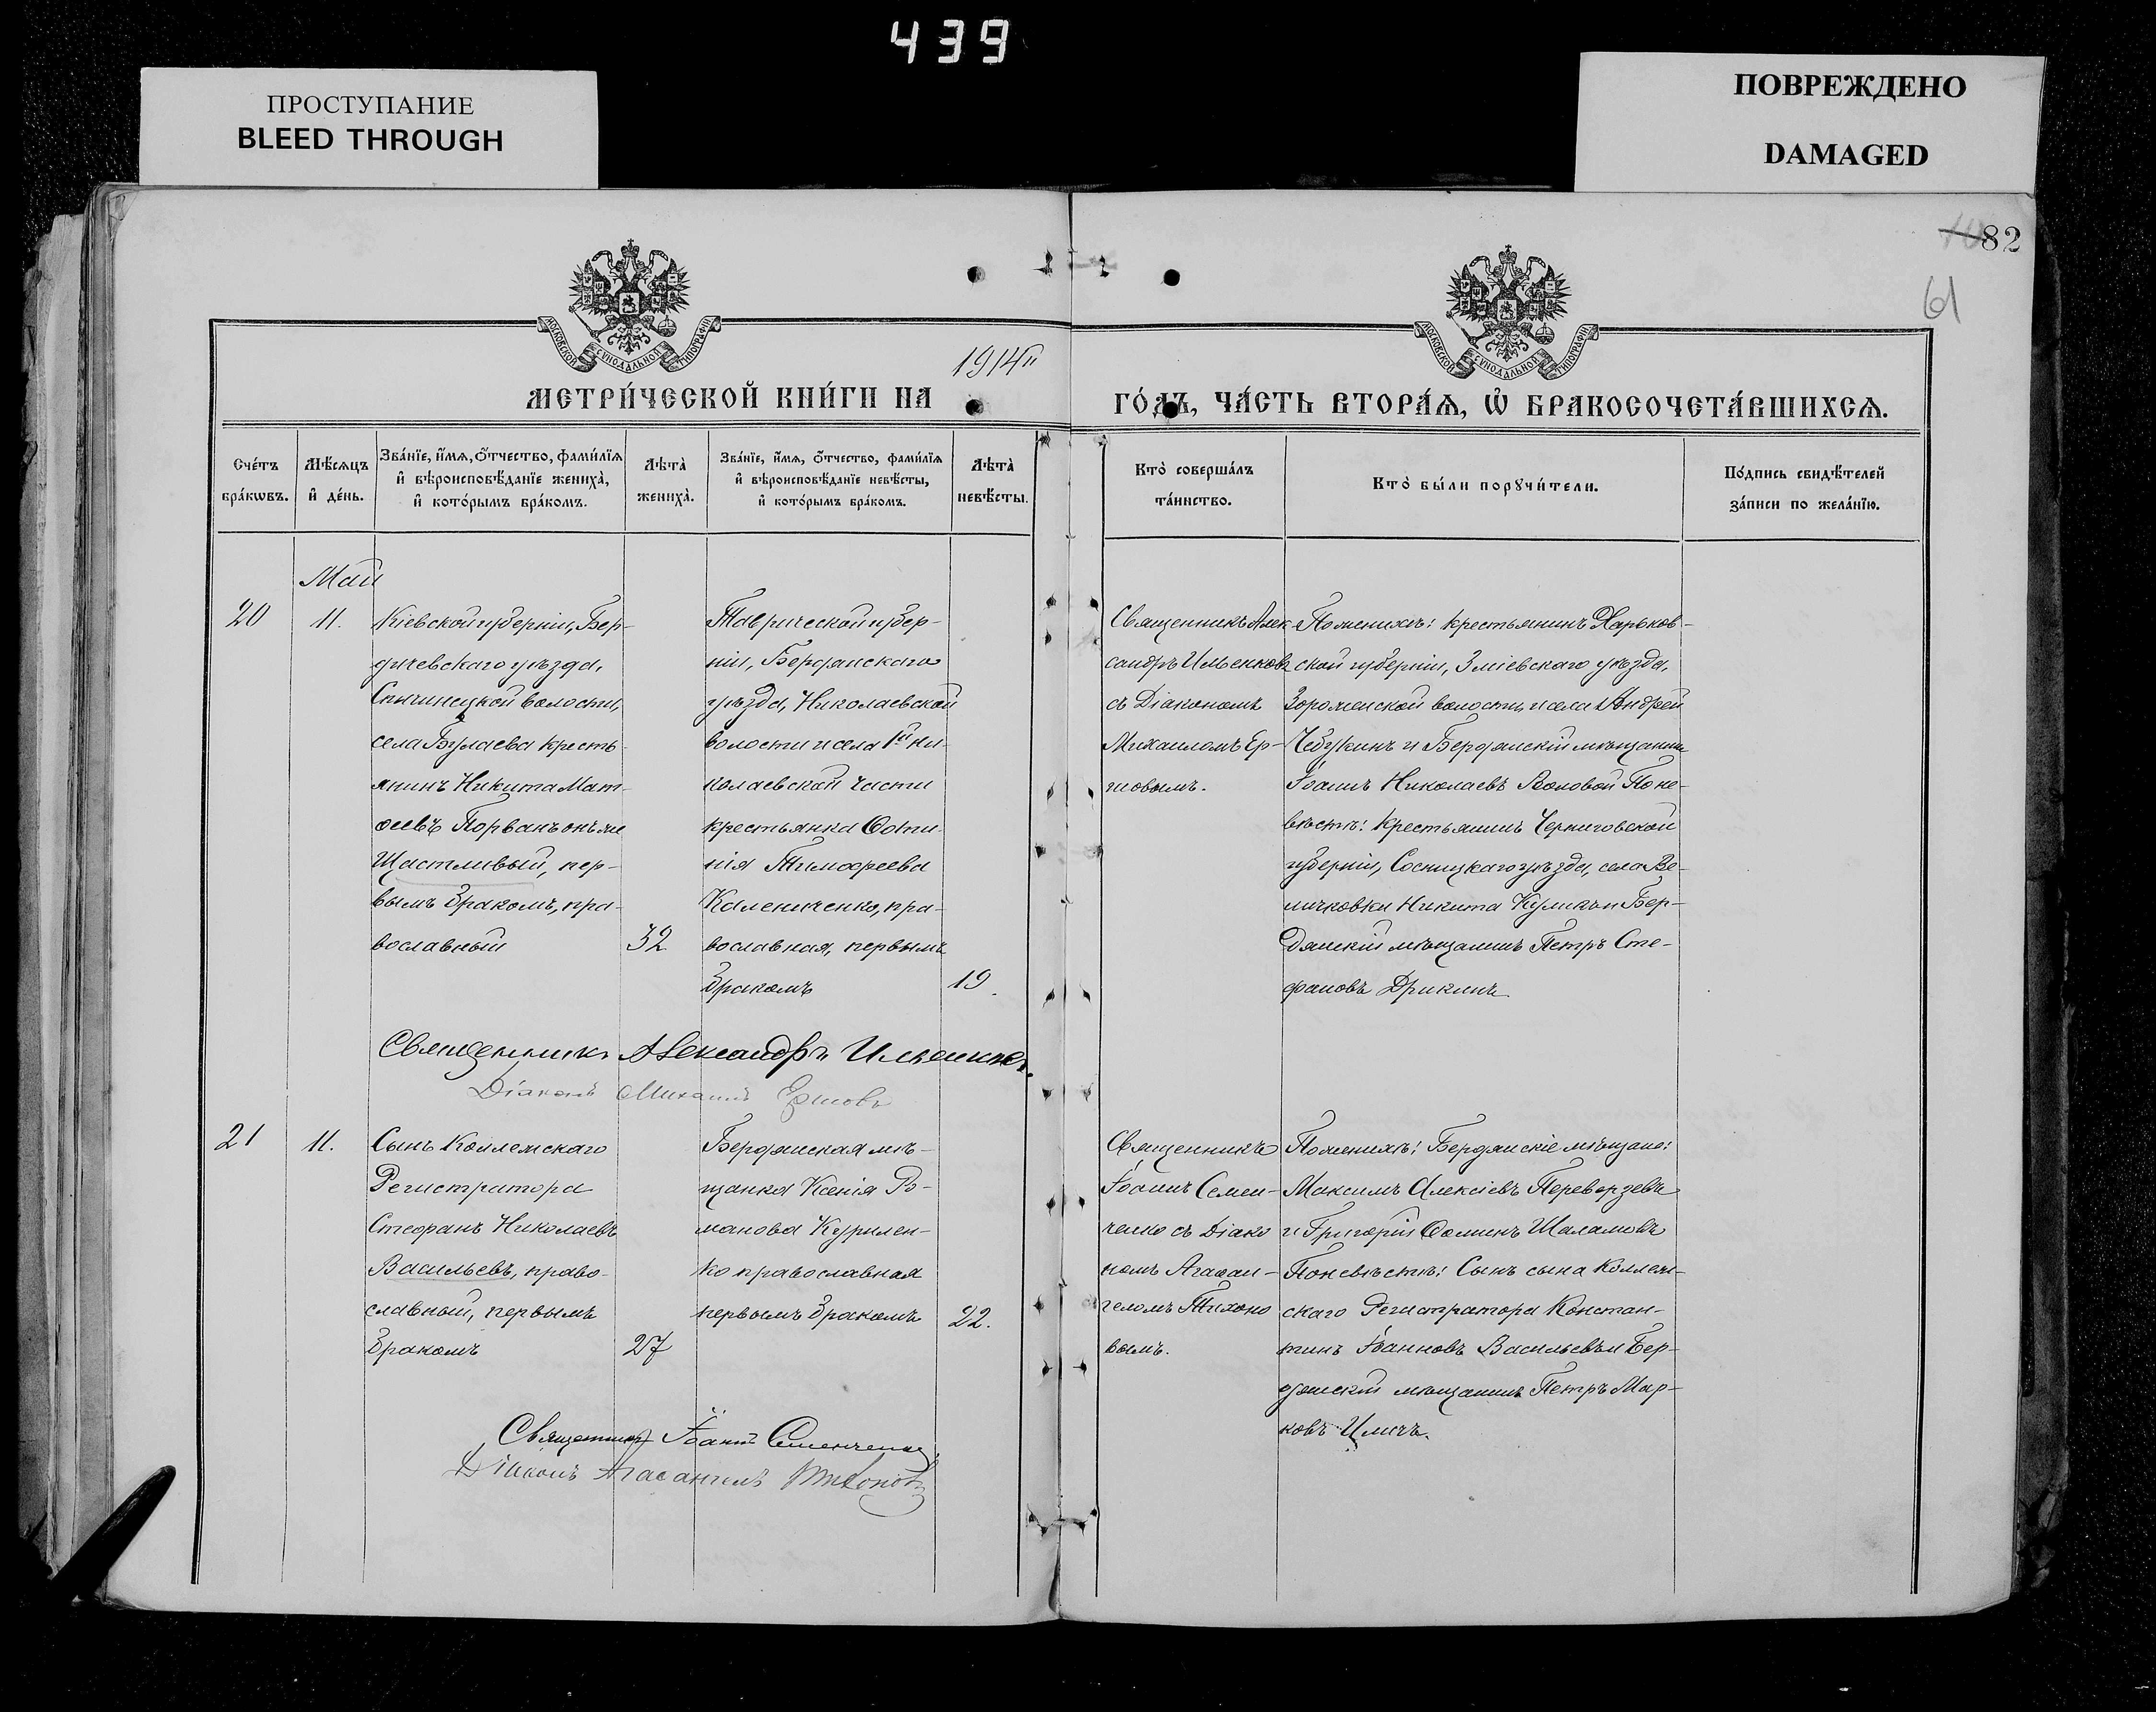 439
ПРОСТУПАНИЕ
BLEED THROUGH
ПОВРЕЖДЕНО
DAMAGED
82
61
МОСКОВСКОЙ СУНОДАЛЬНОЙ ТИПОГРАФІИ
МОСКОВСКОЙ СУНОДАЛЬНОЙ ТИПОГРАФІИ
МЕТРИ́ЧЕСКОЙ КНИ́ГИ НА 1914
ГО́ДЪ, ЧА́СТЬ ВТОРА́Ѧ, Ѡ҆ БРАКОСОЧЕТА́ВШИХСѦ.
Сче́тъ
бра́кѡвъ.
Мѣ́сѧцъ
и҆ де́нь.
Зва́нїе, и҆́мѧ, ѻ҆́тчество, фами́лїѧ
и҆ вѣроисповѣ́данїе жениха̀,
и҆ кото́рымъ бра́комъ.
Лѣта̀
жениха̀.
Зва́нїе, и҆́мѧ, ѻ҆́тчество, фами́лїѧ
и҆ вѣроисповѣ́данїе невѣ́сты,
и҆ кото́рымъ бра́комъ.
Лѣта̀
невѣ́сты.
Кто̀ соверша́лъ
та́инство.
Кто̀ бы́ли порꙋчи́тели.
По́дпись свидѣ́телей
за́писи по жела́нїю.
Май
20
11.
Кіевской губерніи, Бер-
дичевскаго уѣзда,
Спичинецкой волости,
села Булаева кресть-
янинъ Никита Мат-
ѳеевъ Порванъ онъ же
Щастливый, пер-
вымъ бракомъ, пра-
вославный
32
Таврической губер-
ніи, Бердянскаго
уѣзда, Николаевской
волости и села 1й Ни-
колаевской части
крестьянка Фоти-
нія Тимоѳеева
Калениченко, пра-
вославная, первымъ
бракомъ
19.
Священникъ Алек-
сандръ Ильенковъ
съ Діакономъ
Михаиломъ Ер-
шовымъ.
По женихѣ: крестьянинъ Харьков-
ской губерніи, Зміевскаго уѣзда,
волости и села Андрей
Чебукинъ и Бердянскій мѣщанинъ
Іоаннъ Николаевъ Воловой По не-
вѣстѣ: крестьянинъ Черниговской
губерніи, Сосницкаго уѣзда, села Ве-
личковки Никита Куликъ и Бер-
дянскій мѣщанинъ Петръ Сте-
фановъ Дрикинъ.
Священникъ Александръ Ильенковъ.
Діаконъ Михаилъ Ершовъ
21
11.
Сынъ Коллежскаго
Регистратора
Стефанъ Николаевъ
Васильевъ, право-
славный, первымъ
бракомъ
27
Бердянская мѣ-
щанка Ксенія Ро-
манова Курилен-
ко православная
первымъ бракомъ
22.
Священникъ
Іоаннъ Семен-
ченко съ Діако
номъ Агаѳан-
геломъ Тихоно
вымъ.
По женихѣ: Бердянскіе мѣщане:
Максимъ Алексіевъ Переверзевъ
и Григорій Ѳоминъ Шаламовъ
По невѣстѣ: Сынъ сына Коллеж-
скаго Регистратора Констан-
тинъ Іоанновъ Васильевъ и Бер-
дянскій мѣщанинъ Петръ Мар-
ковъ
Священникъ Іоаннъ Семенченко
Діаконъ Агаѳангелъ Тихоновъ